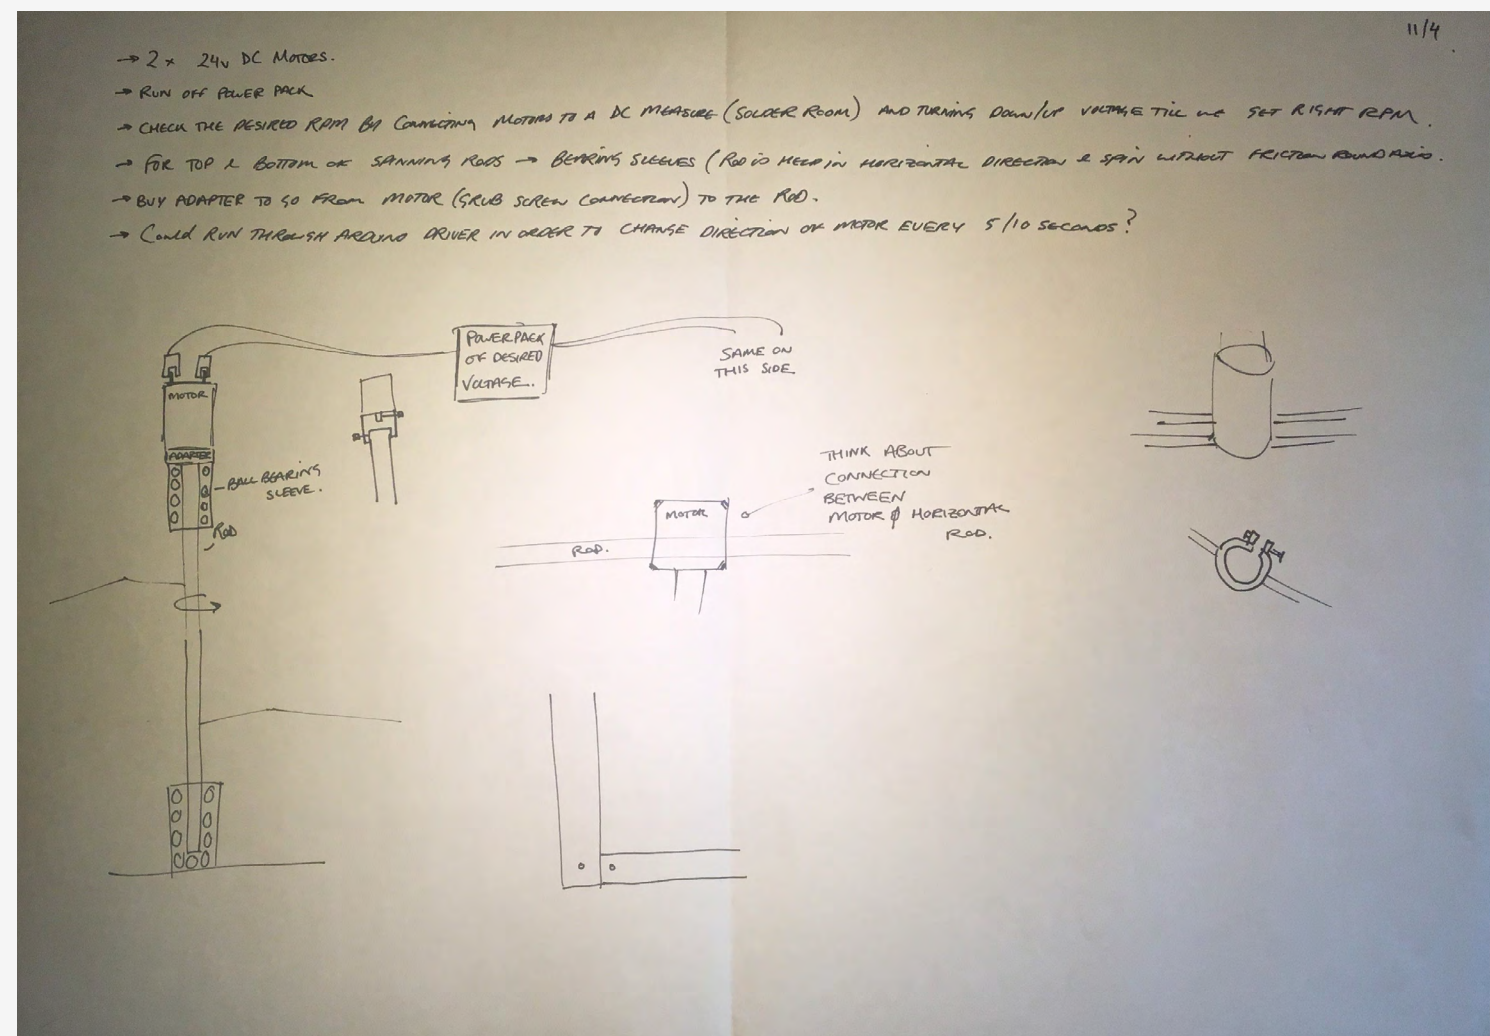 11/4
→ 2 x 24v DC MOTORS.
→ RUN OFF POWER PACK
→ CHECK THE DESIRED RPM BY CONNECTING MOTORS TO A DC MEASURE (SOLDER ROOM) AND TURNING DOWN/UP VOLTAGE TILL WE GET RIGHT RPM.
→ FOR TOP & BOTTOM OF SPANNING RODS → BEARING SLEEVES (ROD IS HELP IN HORIZONTAL DIRECTION & SPIN WITHOUT FRICTION ROUND AXIS.
→ BUY ADAPTER TO GO FROM MOTOR (GRUB SCREW CONNECTION) TO THE ROD.
→ COULD RUN THROUGH ARDUINO DRIVER IN ORDER TO CHANGE DIRECTION OF MOTOR EVERY 5/10 SECONDS?
POWERPACK
OF DESIRED
VOLTAGE.
SAME ON
THIS SIDE
MOTOR
ADAPTER
BALL BEARING
SLEEVE.
ROD
THINK ABOUT
CONNECTION
BETWEEN
MOTOR & HORIZONTAL
ROD.
MOTOR
ROD.